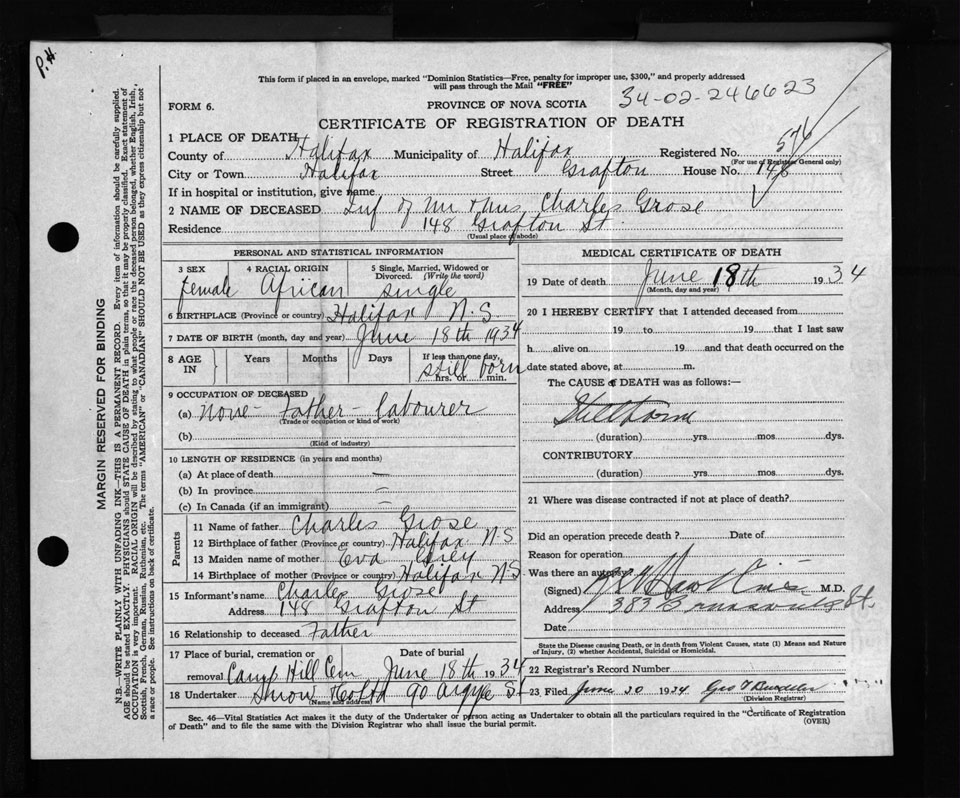 P.H.
This form if placed in an envelope, marked "Dominion Statistics—Free, penalty for improper use, $300," and properly addressed
will pass through the Mail "FREE"
34-02-246623
FORM 6.
PROVINCE OF NOVA SCOTIA
CERTIFICATE OF REGISTRATION OF DEATH
1 PLACE OF DEATH
County of Halifax Municipality of Halifax Registered No. 576
(For use of Registrar General only)
City or Town Halifax Street Grafton House No. 148
If in hospital or institution, give name
2 NAME OF DECEASED Inf of Mr & Mrs Charles Grose
Residence 148 Grafton St.
(Usual place of abode)
PERSONAL AND STATISTICAL INFORMATION
3 SEX 4 RACIAL ORIGIN 5 Single, Married, Widowed or
Divorced. (Write the word)
female African single
6 BIRTHPLACE (Province or country) Halifax N.S.
7 DATE OF BIRTH (month, day and year) June 18th 1934
8 AGE IN Years Months Days If less than one day,
still born
hrs. or min.
9 OCCUPATION OF DECEASED
(a) None - Father - labourer
(Trade or occupation or kind of work)
(b)
(Kind of industry)
10 LENGTH OF RESIDENCE (in years and months)
(a) At place of death —
(b) In province —
(c) In Canada (if an immigrant) —
Parents
11 Name of father Charles Grose
12 Birthplace of father (Province or country) Halifax N.S
13 Maiden name of mother Eva
14 Birthplace of mother (Province or country) Halifax N.S
15 Informant's name Charles Grose
Address 148 Grafton St
16 Relationship to deceased Father
17 Place of burial, cremation or Date of burial
removal Camp Hill Cem June 18th 1934
18 Undertaker Snow & Co Ltd 90 Argyle St
(Name and address)
MEDICAL CERTIFICATE OF DEATH
19 Date of death June 18th 1934
(Month, day and year)
20 I HEREBY CERTIFY that I attended deceased from
19 to 19 that I last saw
h alive on 19 and that death occurred on the
date stated above, at m.
The CAUSE of DEATH was as follows:—
Stillborn
(duration) yrs. mos. dys.
CONTRIBUTORY
(duration) yrs. mos. dys.
21 Where was disease contracted if not at place of death?
Did an operation precede death? Date of
Reason for operation
Was there an autopsy?
(Signed) M.D.
Address 383 Brunswick St.
Date
State the Disease causing Death, or in death from Violent Causes, state (1) Means and Nature
of Injury, (2) whether Accidental, Suicidal or Homicidal.
22 Registrar's Record Number
23 Filed June 20 1934 Geo
(Division Registrar)
Sec. 46—Vital Statistics Act makes it the duty of the Undertaker or person acting as Undertaker to obtain all the particulars required in the "Certificate of Registration
of Death" and to file the same with the Division Registrar who shall issue the burial permit. (OVER)
MARGIN RESERVED FOR BINDING
N.B.—WRITE PLAINLY WITH UNFADING INK—THIS IS A PERMANENT RECORD. Every item of information should be carefully supplied.
AGE should be stated EXACTLY. PHYSICIANS should STATE CAUSE OF DEATH in plain terms, so that it may be properly classified. Exact statement of
OCCUPATION is very important. RACIAL ORIGIN will be described by stating to what people or race the deceased person belonged, whether English, Irish,
Scottish, French, German, Russian, Ruthenian, etc. The terms "AMERICAN" or "CANADIAN" SHOULD NOT BE USED as they express citizenship but not
a race or people. See instructions on back of certificate.